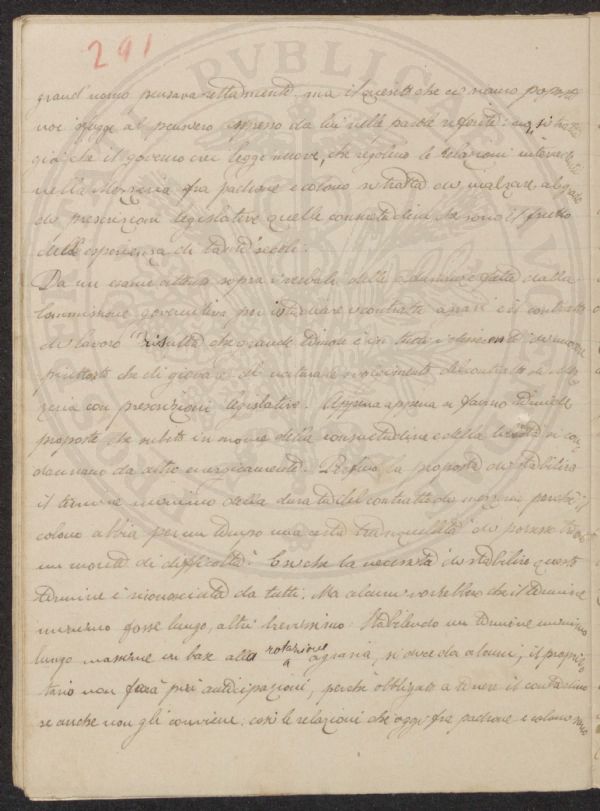 291
grand'uomo pensava rettamente, ma il quesito che ci siamo proposti
noi sfugge al pensiero espresso da lui nelle parole riferite: noi, si tratta
già che il governo crei leggi nuove, che regolino le relazioni
nella Mezzeria fra padrone e colono si tratta di innalzare al grado
di prescrizioni legislative quelle consuetudini che sono il frutto
dell'esperienza di tanti secoli.
Da un esame attento sopra i verbali delle adunanze fatte dalla
Commissione governativa per istudiare i contratti agrari e il contratto
di lavoro risulta che grande timore è in tutti i di nuocere
piuttosto che di giovare al naturale svolgimento del contratto di Mez
zeria con prescrizioni legislative. Appena appena si fanno timide
proposte che subito in nome della consuetudine e della libertà si con
dannano da altri energicamente. Perfino la proposta di stabilire
il termine minimo della durata del contratto di mezzeria perchè il
colono abbia per un tempo una certa tranquillità di possesso trova
un monte di difficoltà. E sì che la necessità di stabilire questo
termine è riconosciuta da tutti. Ma alcuni vorrebbero che il termine
minimo fosse lungo, altri brevissimo. Stabilendo un termine minimo
lungo massime in base alla rotazione agraria, si dice da alcuni, il proprie
tario non farà più anticipazioni, perchè obbligato a tenere il contadino
se anche non gli conviene: così le relazioni che oggi fra padrone e colono sono